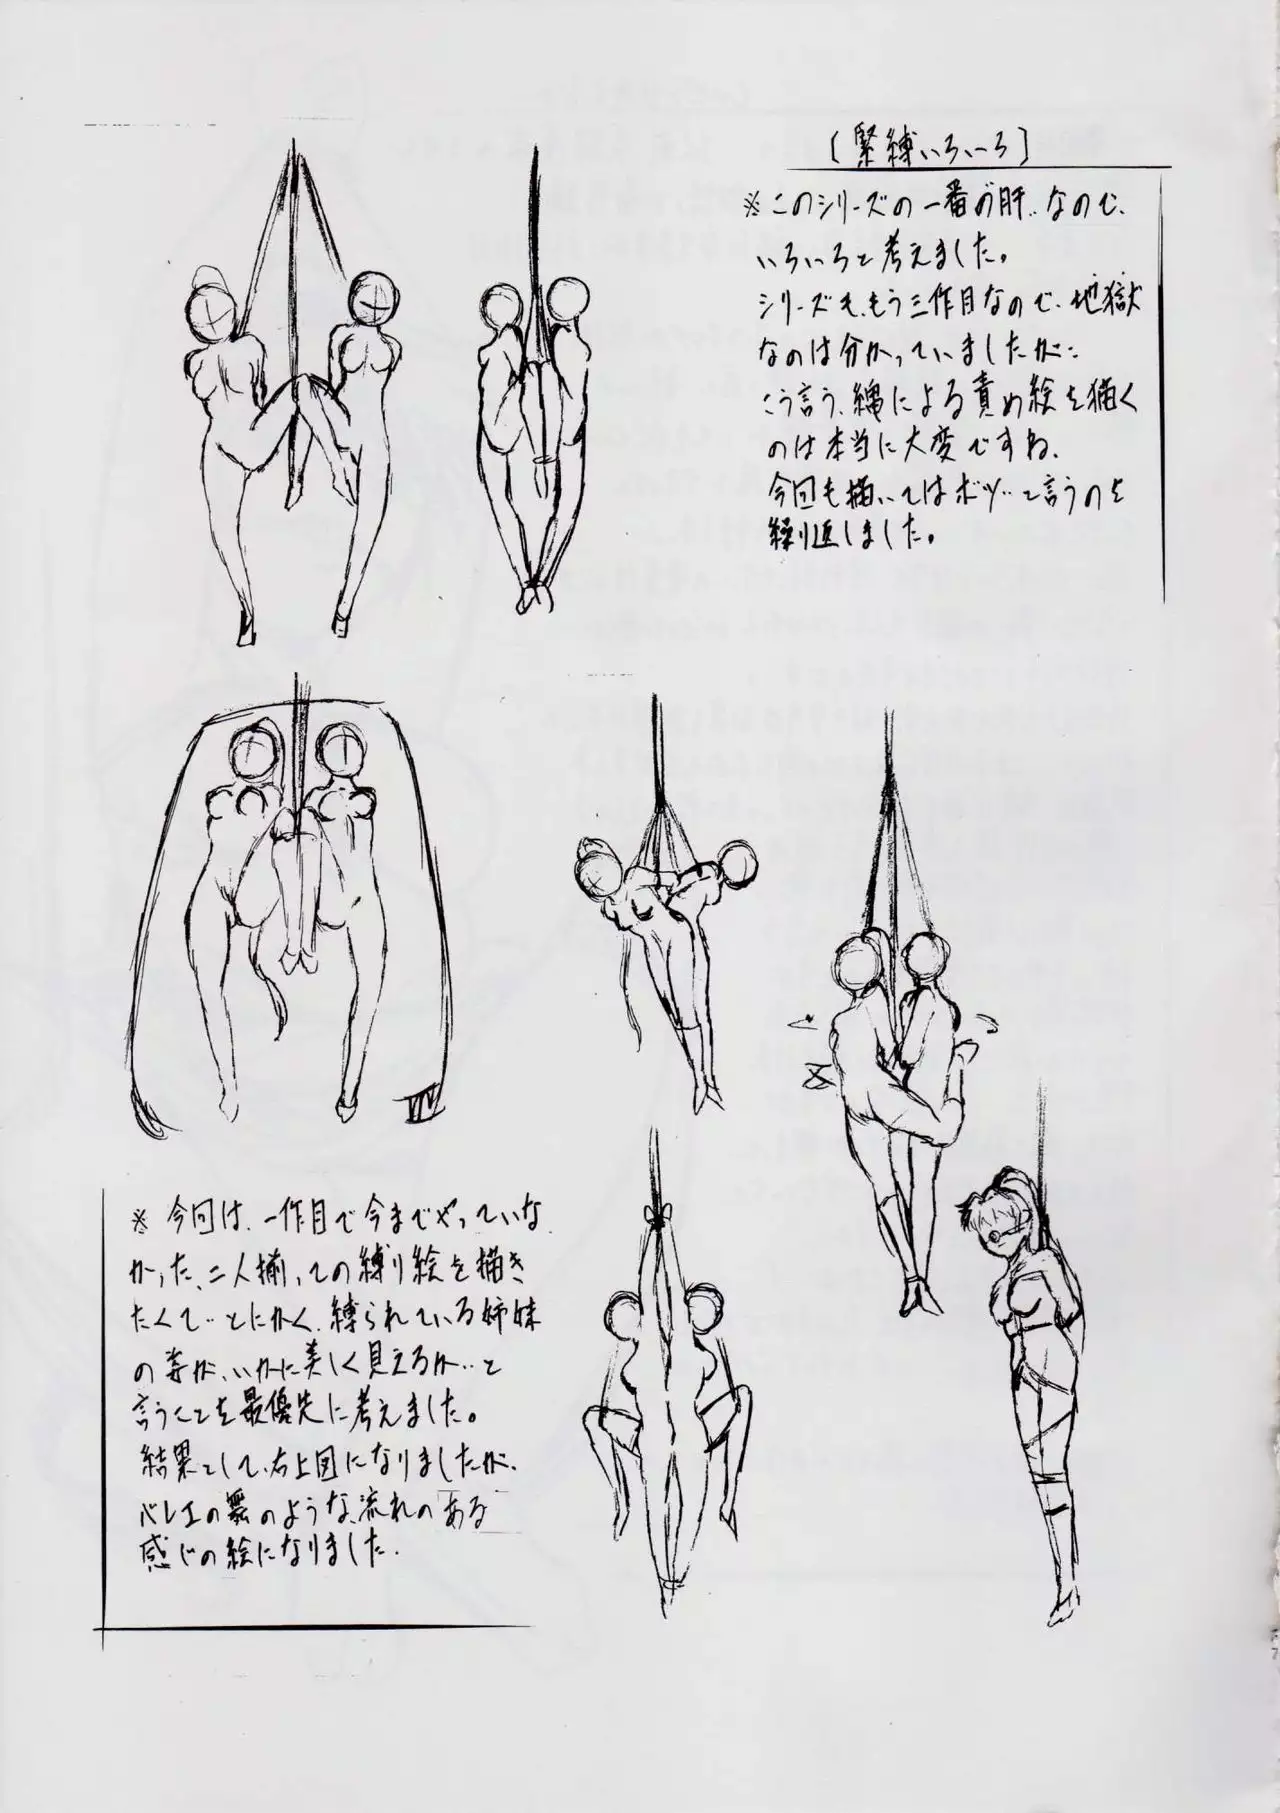 〔緊縛いろいろ〕
※このシリーズの一番の肝‥なので、
いろいろと考えました。
シリーズも、もう三作目なので、地獄
なのは分かっていましたが‥
こう言う、縄による責め絵を描く
のは本当に大変ですね、
今回も描いてはボツ‥と言うのを
繰り返しました。
※今回は、一作目で今までやっていな
かった、二人揃っての縛り絵を描き
たくて‥とにかく、縛られている姉妹
の姿が、いかに美しく見えるか‥と
言うことを最優先に考えました。
結果として、右上図になりましたが、
バレエの舞のような、流れのある
感じの絵になりました。